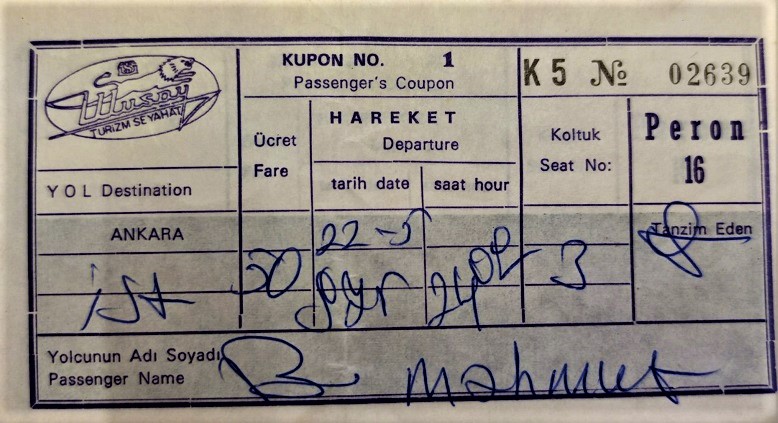 Ulusoy
TURİZM SEYAHAT
KUPON NO. 1
Passenger's Coupon
K 5 № 02639
Ücret
Fare
HAREKET
Departure
tarih date
saat hour
Koltuk
Seat No:
Peron
16
YOL Destination
ANKARA
22-5
Tanzim Eden
ist
50
24 00
3
Yolcunun Adı Soyadı
Passenger Name
B. Mahmut